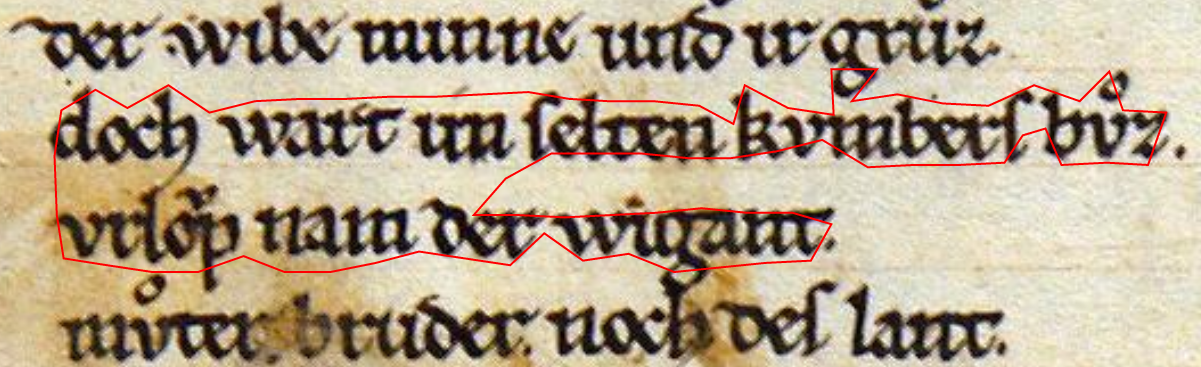 der wibe minne und ir grůz.
doch wart im selten kvmbers bůz.
vrlop nam der wigant.
můter. bruder. noch des lant.